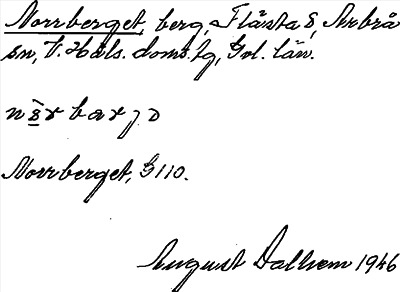 Norrberget, berg, Flästa 8, Arbrå
sn, V. Häls. doms. tg, Gvl. län.
Norrberget, G110.
August Dalhem 1946